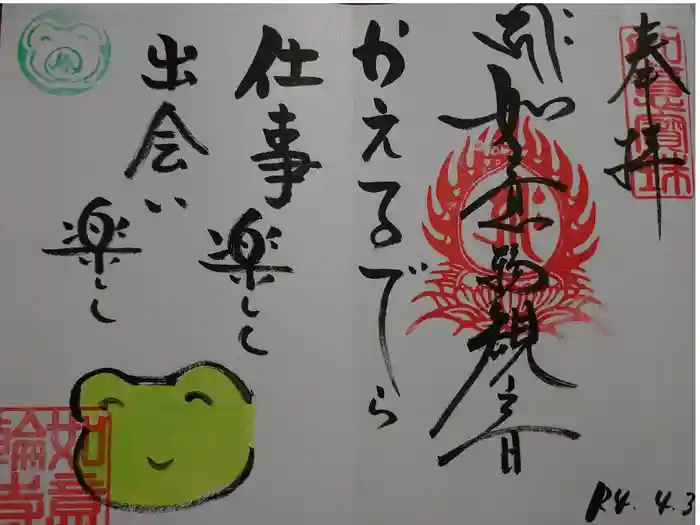 奉拝
如意宝珠
如意輪観音
かえるでら
仕事
楽しく
出会い
楽しく
如意
輪寺
R4. 4. 3